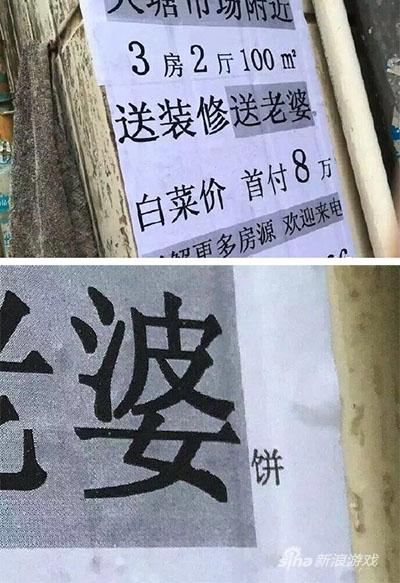 塘市场附近
3房2厅100㎡
送装修送老婆
白菜价 首付8万
解更多房源 欢迎来电
老婆饼
sina新浪游戏